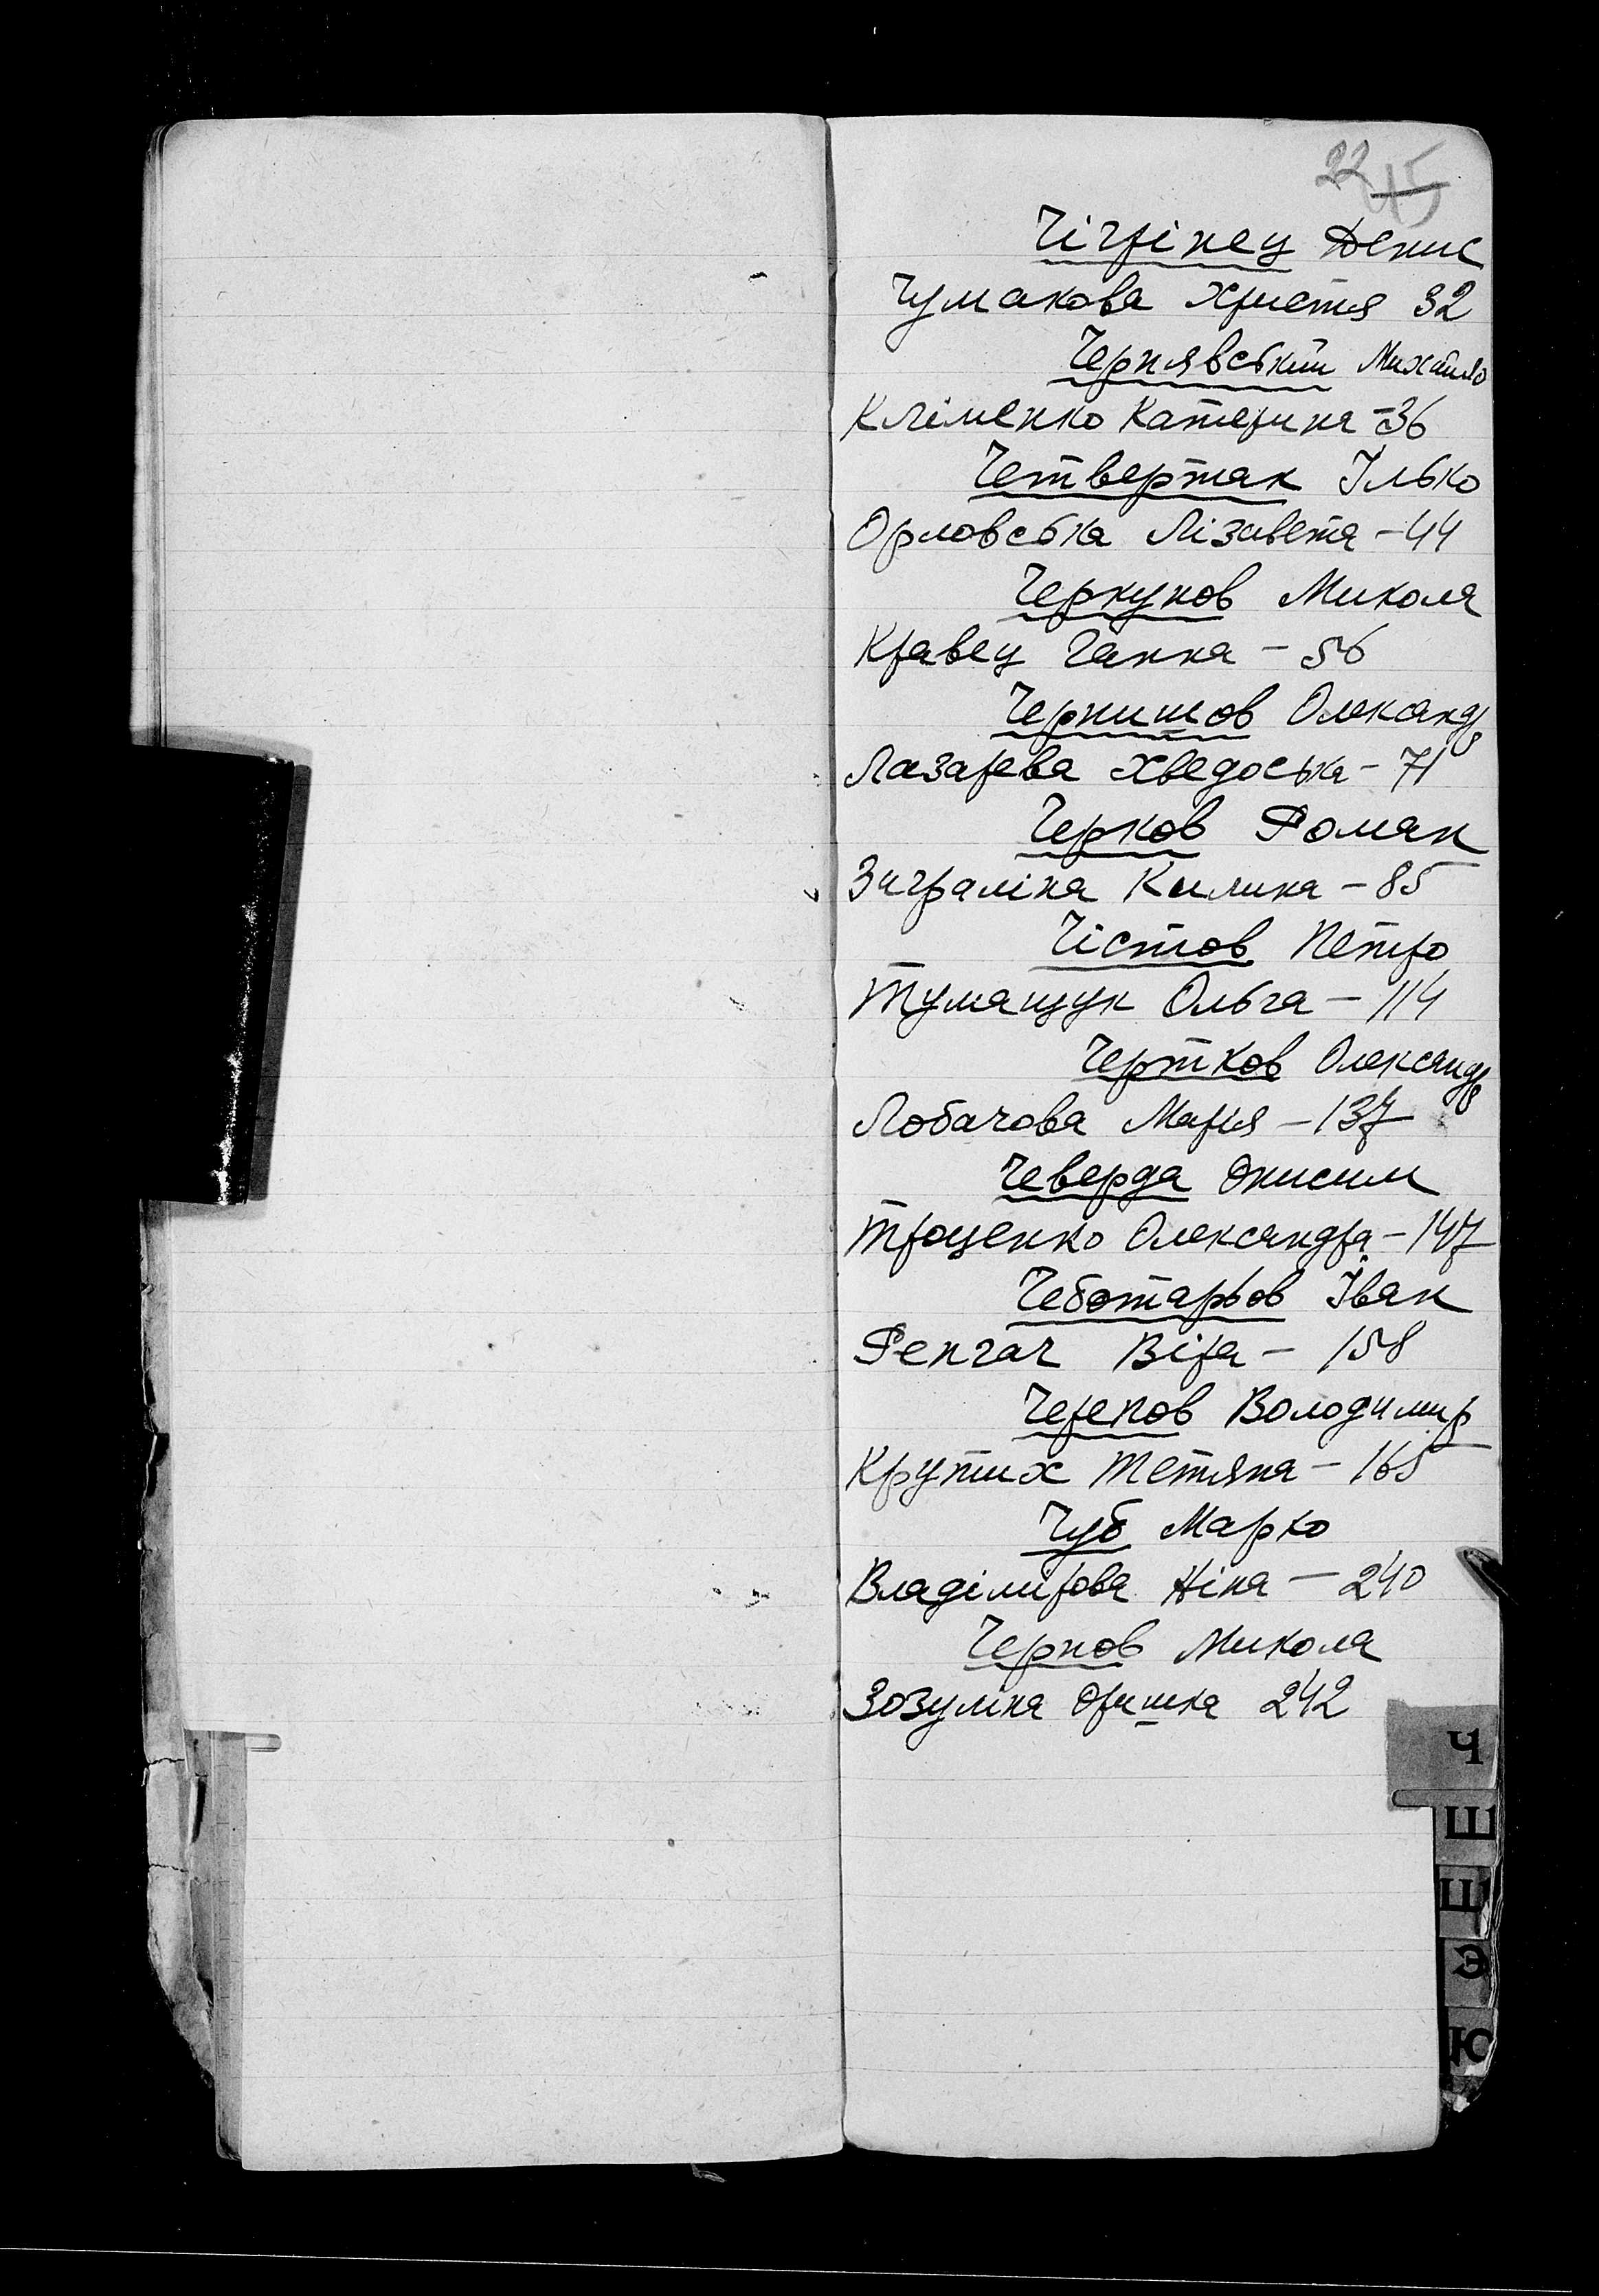 22 45
Чігрінец Денис
Чумакова Христя 32
Чернявський Михайло
Кліменко Катерина -36
Четвертак Ілько
Орловська Лізавета - 44
Черкунов Микола
Кравец Ганна - 56
Чернишов Олександр
Лазарева Хведоська - 71
Черков Роман
Заграліна Килина - 85
Чістов Петро
Тумащук Ольга - 114
Чертков Олександр
Лобачова Марія - 137
Чеверда Онисим
Троценко Олександра - 147
Чеботарьов Іван
Ренгач Віра - 158
Черепов Володимир
Крутих Тетяна - 165
Чуб Марко
Владімирова Ніна - 240
Чернов Микола
Зозуліна Оришка 242
Ч
Ш
Щ
Э
Ю